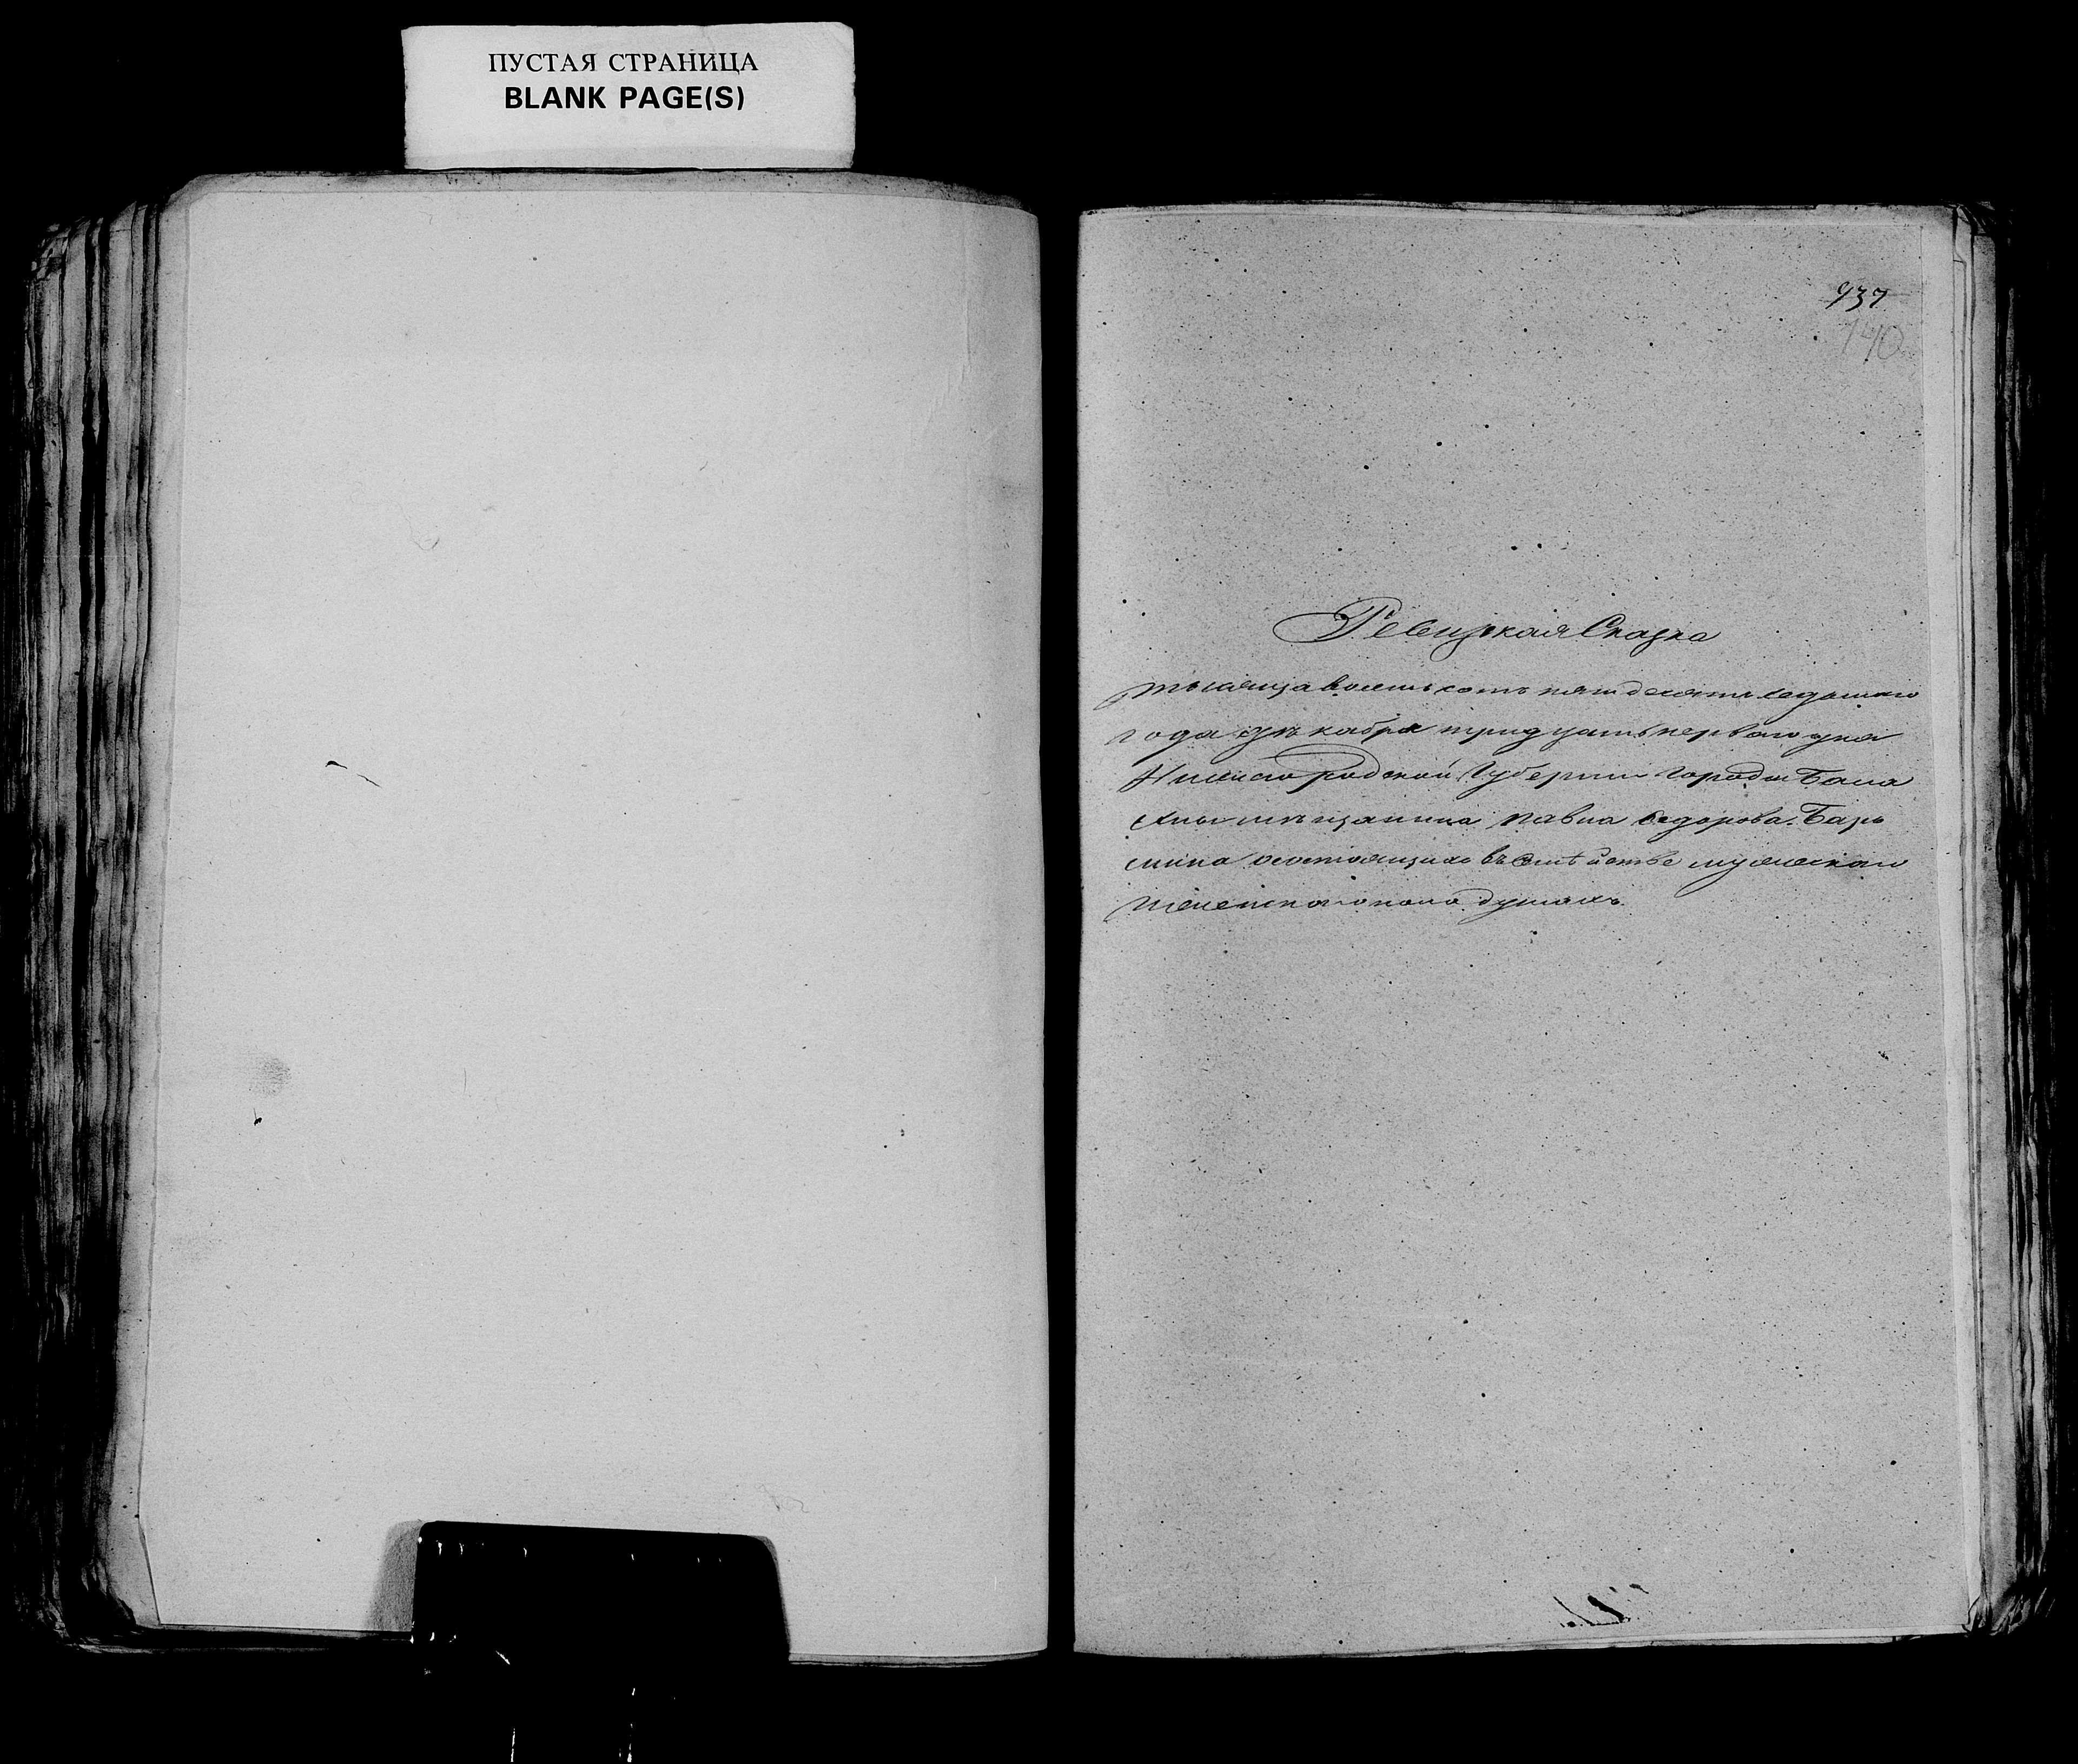 ПУСТАЯ СТРАНИЦА
BLANK PAGE(S)
937
140
Ревизская Сказка
тысяща восемь сотъ пятдесятъ седьмаго
года дѣкабря тридцать перваго дня
Нижегородской Губернии города Бала
хны мѣщанина Павла Федорова
состоящихъ въ сѣмѣйстве мужескаго
женскаго пола душахъ.